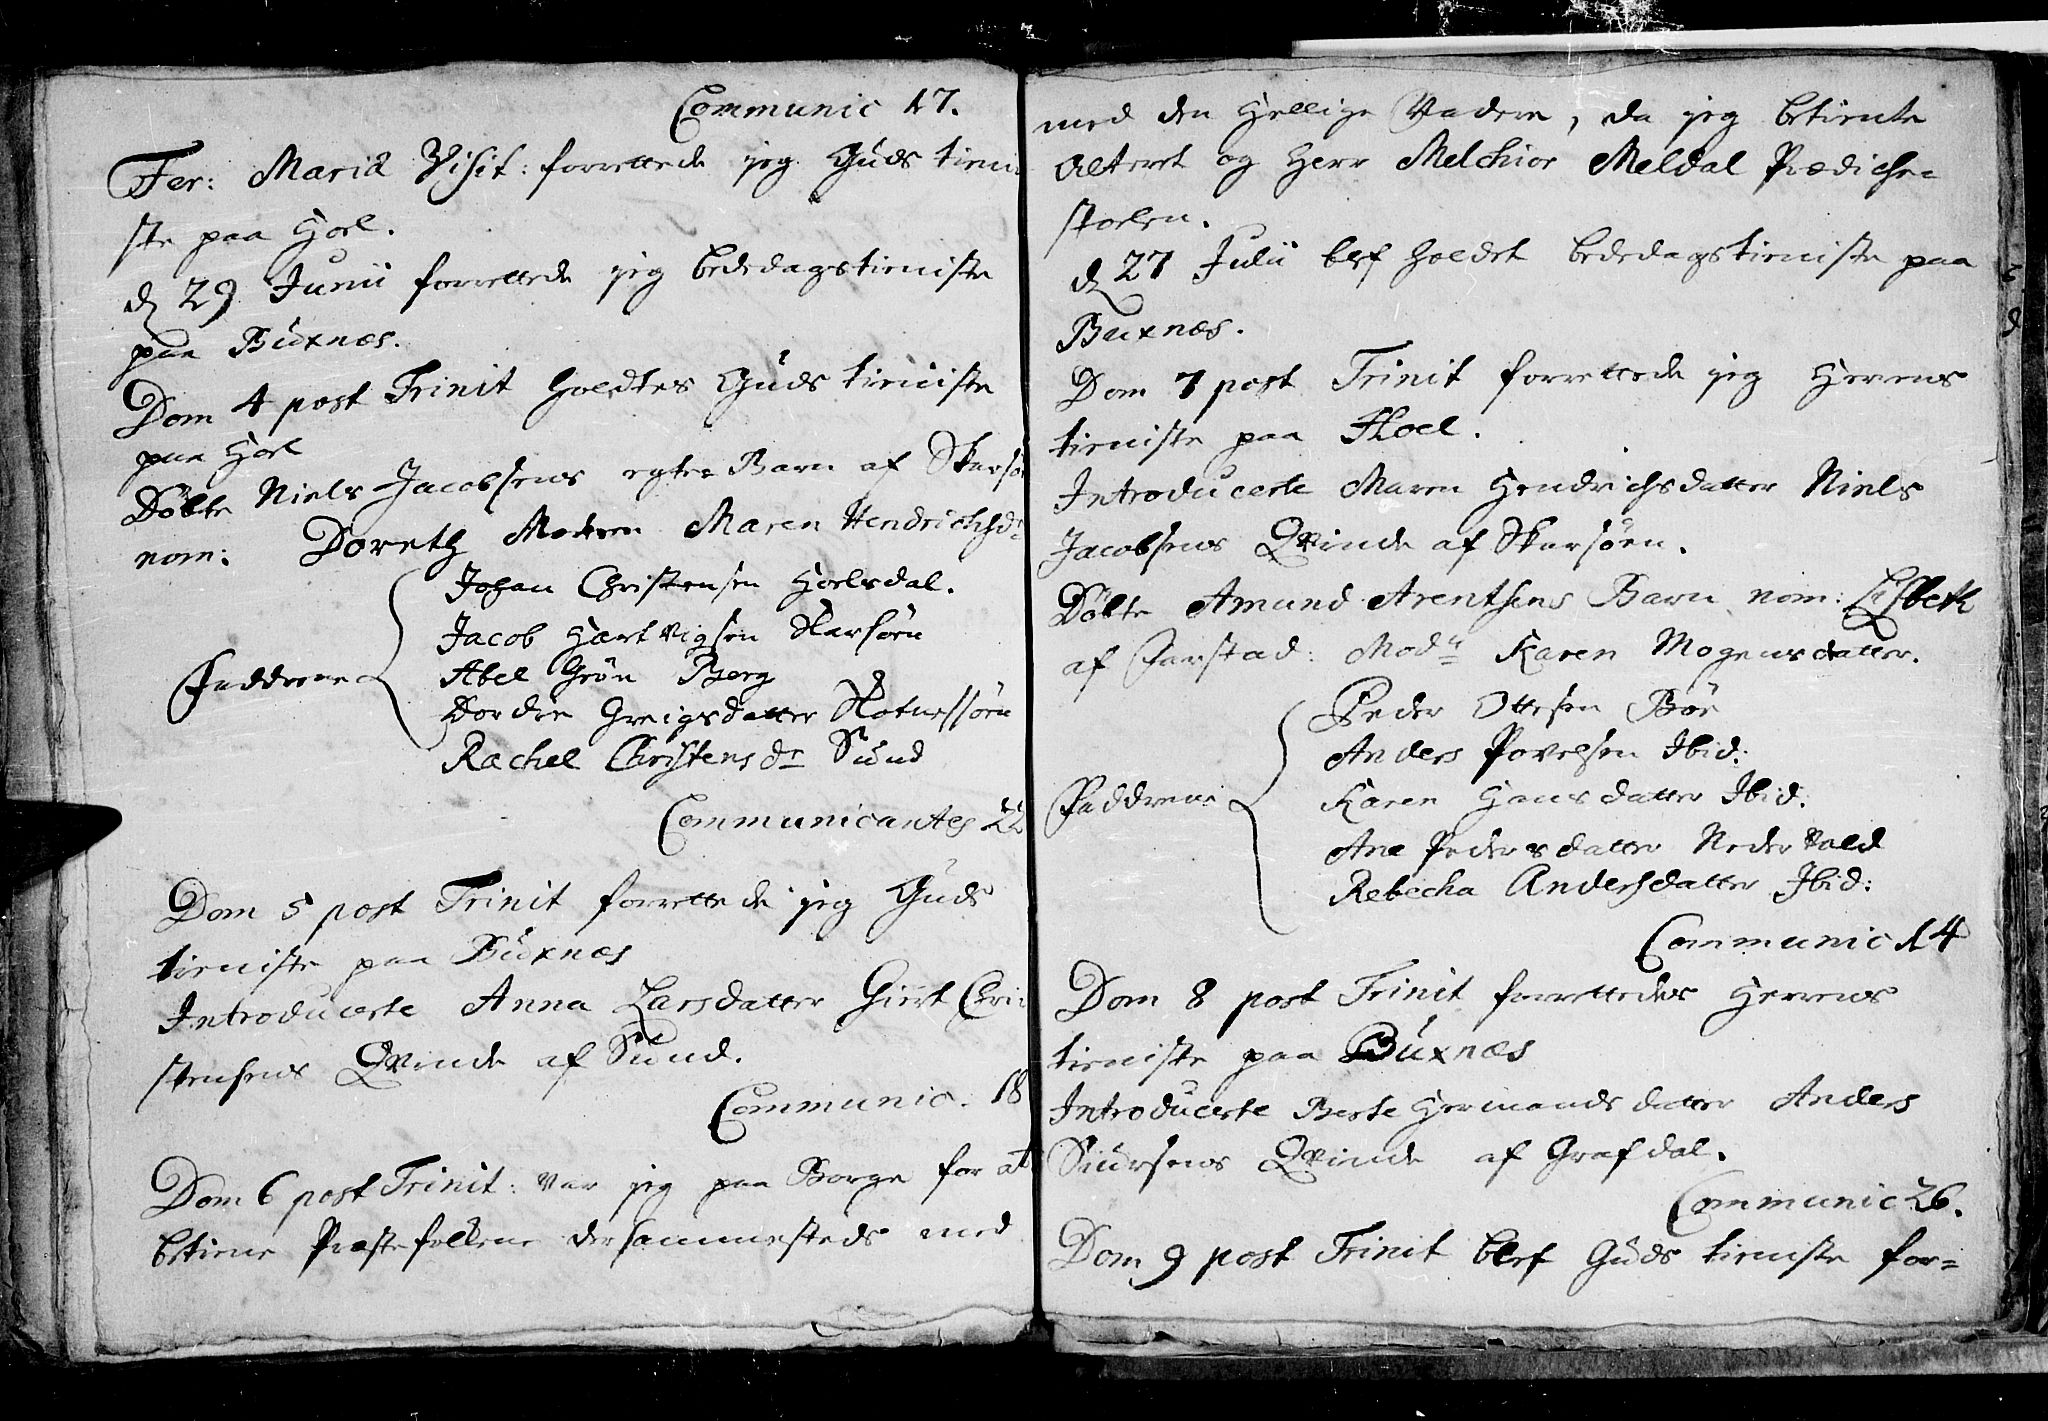 Communic 17.
Fer: Mariæ Visit: forrettede jeg Guds tieni
ste paa Hoel.
d 29 Junii forrettede jeg bededagstieniste
paa Buxnæs.
Dom 4 post Trinit holdtes Guds tieniste
paa Hoel
Döbte Niels Jacobsens egte Barn af Skarsö
nom: Doreth Modren Maren Hendrichsdr
Johan Christensen Hoelsdal.
Jacob Hartvigsen Skarsöen
Fadderne Abel Grön Berg
Dordie Greigsdatter
Rachel Christens dr Sund
Communicantes 22
Dom 5 post Trinit forrettede jeg Guds
tieniste paa Buxnæs
Introducerte Anna Larsdatter Giert Chri
stensens Qvinde af Sund.
Communic. 18
Dom 6 post Trinit: var jeg paa Borge for at
betiene Præstefolkene dersammesteds med
med den Hellige Nadere, da jeg betiente
Alteret og Herr Melchior Meldal Prædiche-
stoelen.
d 27 Julii blef holdet bededagstieniste paa
Buxnæs.
Dom 7 post Trinit forrettede jeg Herrens
tieniste paa Hoel.
Introducerte Maren Hendrichsdatter Niels
Jacobsens Qvinde af Skarsöen.
Döbte Amund Arentsens Barn nom: Lisbeth
af Farstad: Modr Karen Mogensdatter.
Peder Ottesen Böe
Anders Povelsen Ibid:
Fadderne Karen Hansdatter Ibid:
Ane Pedersdatter Nedervold
Rebecha Andersdatter Ibid:
Communic 14
Dom 8 post Trinit forrettedes Herrens
tieniste paa Buxnæs
Introducerte Berte Hermandsdatter Anders
Siursens Qvinde af Grafdal.
Communic 26.
Dom 9 post Trinit blef Guds tieniste for=